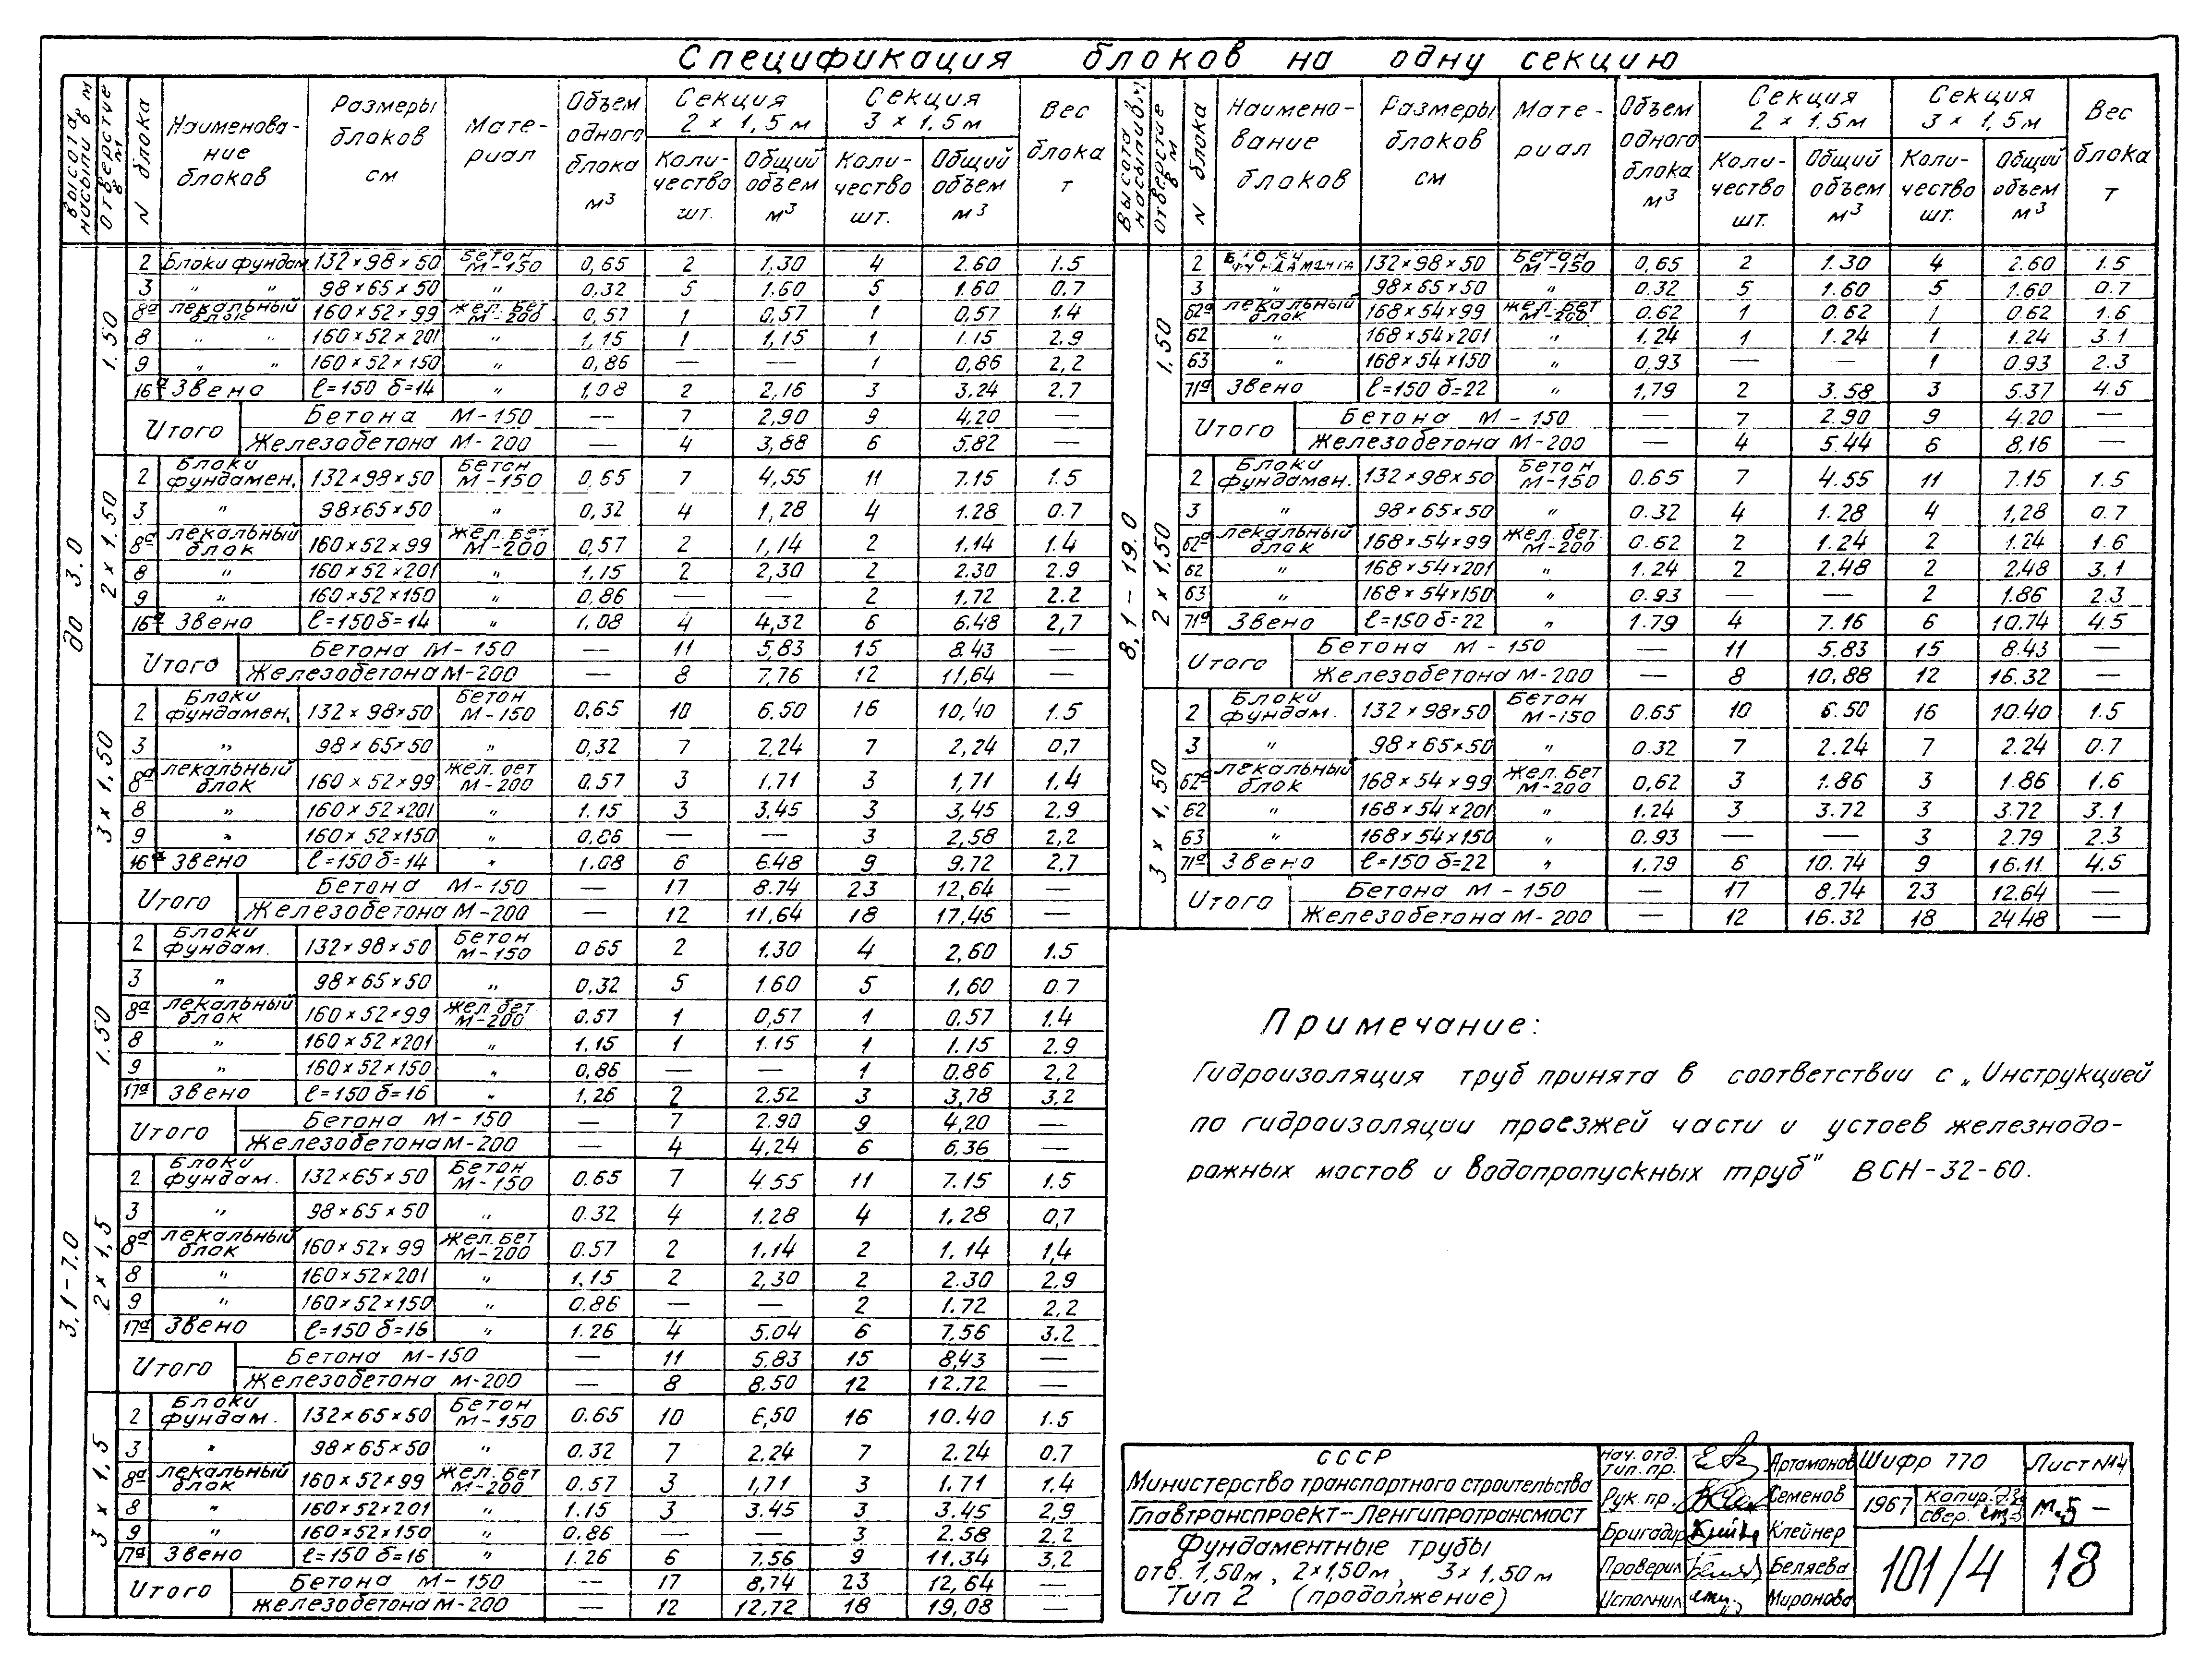 Спецификация блоков на одну секцию
Высота насыпи в м | Отверстие в м | N блока | Наименование блоков | Размеры блоков см | Материал | Объем одного блока м3 | Секция 2 × 1,5 м | Секция 3 × 1,5 м | Вес блока т
Количество шт. | Общий объем м3 | Количество шт. | Общий объем м3
до 3.0
1.50
2 | Блоки фундам | 132×98×50 | Бетон М-150 | 0,65 | 2 | 1,30 | 4 | 2.60 | 1.5
3 | " " | 98×65×50 | " | 0,32 | 5 | 1.60 | 5 | 1.60 | 0.7
8а | лекальный блок | 160×52×99 | жел. бет М-200 | 0,57 | 1 | 0,57 | 1 | 0,57 | 1.4
8 | " " | 160×52×201 | " | 1,15 | 1 | 1,15 | 1 | 1.15 | 2.9
9 | " " | 160×52×150 | " | 0,86 | — | — | 1 | 0,86 | 2,2
16а | Звено | ℓ=150 δ=14 | " | 1,08 | 2 | 2,16 | 3 | 3.24 | 2.7
Итого | Бетона М-150 | — | 7 | 2,90 | 9 | 4.20 | —
Железобетона М-200 | — | 4 | 3,88 | 6 | 5,82 | —
2 × 1.50
2 | Блоки фундамен. | 132×98×50 | Бетон М-150 | 0,65 | 7 | 4,55 | 11 | 7.15 | 1.5
3 | " | 98×65×50 | " | 0,32 | 4 | 1,28 | 4 | 1.28 | 0.7
8а | лекальный блок | 160×52×99 | жел. бет М-200 | 0,57 | 2 | 1,14 | 2 | 1.14 | 1.4
8 | " | 160×52×201 | " | 1,15 | 2 | 2,30 | 2 | 2.30 | 2.9
9 | " | 160×52×150 | " | 0,86 | — | — | 2 | 1.72 | 2.2
16а | Звено | ℓ=150 δ=14 | " | 1,08 | 4 | 4,32 | 6 | 6.48 | 2,7
Итого | Бетона М-150 | — | 11 | 5,83 | 15 | 8.43 | —
Железобетона М-200 | — | 8 | 7,76 | 12 | 11,64 | —
3 × 1,50
2 | Блоки фундамен. | 132×98×50 | Бетон М-150 | 0,65 | 10 | 6.50 | 16 | 10,40 | 1.5
3 | " | 98×65×50 | " | 0,32 | 7 | 2,24 | 7 | 2,24 | 0,7
8а | лекальный блок | 160×52×99 | жел. бет М-200 | 0,57 | 3 | 1.71 | 3 | 1,71 | 1.4
8 | " | 160×52×201 | " | 1.15 | 3 | 3.45 | 3 | 3,45 | 2.9
9 | " | 160×52×150 | " | 0,86 | — | — | 3 | 2,58 | 2,2
16а | Звено | ℓ=150 δ=14 | " | 1.08 | 6 | 6.48 | 9 | 9.72 | 2,7
Итого | Бетона М-150 | — | 17 | 8.74 | 23 | 12,64 | —
Железобетона М-200 | — | 12 | 11,64 | 18 | 17,46 | —
3,1-7.0
1.50
2 | Блоки фундам. | 132×98×50 | Бетон М-150 | 0 65 | 2 | 1.30 | 4 | 2,60 | 1.5
3 | " | 98×65×50 | " | 0,32 | 5 | 1.60 | 5 | 1,60 | 0.7
8а | лекальный блок | 160×52×99 | жел. бет. М-200 | 0.57 | 1 | 0,57 | 1 | 0.57 | 1.4
8 | " | 160×52×201 | " | 1.15 | 1 | 1.15 | 1 | 1.15 | 2.9
9 | " | 160×52×150 | " | 0,86 | — | — | 1 | 0.86 | 2,2
17а | Звено | ℓ=150 δ=16 | " | 1,26 | 2 | 2.52 | 3 | 3,78 | 3,2
Итого | Бетона М-150 | — | 7 | 2.90 | 9 | 4,20 | —
Железобетона М-200 | — | 4 | 4,24 | 6 | 6,36 | —
2 × 1,5
2 | Блоки фундам. | 132×65×50 | Бетон М-150 | 0.65 | 7 | 4.55 | 11 | 7.15 | 1.5
3 | " | 98×65×50 | " | 0.32 | 4 | 1.28 | 4 | 1,28 | 0,7
8а | лекальный блок | 160×52×99 | жел. бет М-200 | 0.57 | 2 | 1,14 | 2 | 1.14 | 1,4
8 | " | 160×52×201 | " | 1.15 | 2 | 2,30 | 2 | 2.30 | 2.9
9 | " | 160×52×150 | " | 0.86 | — | — | 2 | 1.72 | 2,2
17а | Звено | ℓ=150 δ=16 | " | 1.26 | 4 | 5.04 | 6 | 7.56 | 3.2
Итого | Бетона М-150 | — | 11 | 5.83 | 15 | 8,43 | —
Железобетона М-200 | — | 8 | 8.50 | 12 | 12.72 | —
3 × 1,5
2 | Блоки фундам. | 132×65×50 | Бетон М-150 | 0.65 | 10 | 6,50 | 16 | 10.40 | 1.5
3 | " | 98×65×50 | " | 0.32 | 7 | 2.24 | 7 | 2.24 | 0.7
8а | лекальный блок | 160×52×99 | жел. бет М-200 | 0.57 | 3 | 1,71 | 3 | 1.71 | 1.4
8 | " | 160×52×201 | " | 1.15 | 3 | 3.45 | 3 | 3.45 | 2,9
9 | " | 160×52×150 | " | 0.86 | — | — | 3 | 2.58 | 2.2
17а | Звено | ℓ=150 δ=16 | " | 1.26 | 6 | 7.56 | 9 | 11.34 | 3,2
Итого | Бетона М-150 | — | 17 | 8,74 | 23 | 12,64 | —
железобетона М-200 | — | 12 | 12.72 | 18 | 19,08 | —
Высота насыпи в м | отверстие в м | N блока | Наименование блоков | Размеры блоков см | Материал | Объем одного блока м3 | Секция 2 × 1.5м | Секция 3 × 1,5м | Вес блока т
Количество шт. | Общий объем м3 | Количество шт. | Общий объем м3
8,1-19.0
1.50
2 | Блоки фундамента | 132×98×50 | Бетон М-150 | 0,65 | 2 | 1.30 | 4 | 2.60 | 1.5
3 | " | 98×65×50 | " | 0.32 | 5 | 1.60 | 5 | 1.60 | 0.7
62а | лекальный блок | 168×54×99 | жел. бет М-200 | 0.62 | 1 | 0.62 | 1 | 0.62 | 1.6
62 | " | 168×54×201 | " | 1,24 | 1 | 1.24 | 1 | 1.24 | 3.1
63 | " | 168×54×150 | " | 0,93 | — | — | 1 | 0.93 | 2.3
71а | Звено | ℓ=150 δ=22 | " | 1,79 | 2 | 3.58 | 3 | 5.37 | 4.5
Итого | Бетона М-150 | — | 7 | 2.90 | 9 | 4.20 | —
Железобетона М-200 | — | 4 | 5.44 | 6 | 8,16 | —
2 × 1,50
2 | Блоки фундамен. | 132×98×50 | Бетон М-150 | 0.65 | 7 | 4.55 | 11 | 7.15 | 1.5
3 | " | 98×65×50 | " | 0.32 | 4 | 1.28 | 4 | 1,28 | 0.7
62а | лекальный блок | 168×54×99 | жел. бет. М-200 | 0.62 | 2 | 1.24 | 2 | 1.24 | 1.6
62 | " | 168×54×201 | " | 1.24 | 2 | 2,48 | 2 | 2,48 | 3,1
63 | " | 168×54×150 | " | 0.93 | — | — | 2 | 1.86 | 2.3
71а | Звено | ℓ=150 δ=22 | " | 1.79 | 4 | 7.16 | 6 | 10.74 | 4.5
Итого | Бетона М-150 | — | 11 | 5.83 | 15 | 8.43 | —
Железобетона М-200 | — | 8 | 10,88 | 12 | 16.32 | —
3 × 1,50
2 | Блоки фундам. | 132×98×50 | Бетон М-150 | 0.65 | 10 | 6.50 | 16 | 10.40 | 1.5
3 | " | 98×65×50 | " | 0.32 | 7 | 2.24 | 7 | 2.24 | 0.7
62а | лекальный блок | 168×54×99 | жел. бет М-200 | 0,62 | 3 | 1.86 | 3 | 1.86 | 1.6
62 | " | 168×54×201 | " | 1.24 | 3 | 3.72 | 3 | 3.72 | 3.1
63 | " | 168×54×150 | " | 0.93 | — | — | 3 | 2.79 | 2.3
71а | Звено | ℓ=150 δ=22 | " | 1.79 | 6 | 10.74 | 9 | 16.11 | 4.5
Итого | Бетона М-150 | — | 17 | 8,74 | 23 | 12.64 | —
Железобетона М-200 | — | 12 | 16.32 | 18 | 24.48 | —
Примечание:
Гидроизоляция труб принята в соответствии с „Инструкцией
по гидроизоляции проезжей части и устоев железнодо-
рожных мостов и водопропускных труб" ВСН-32-60.
СССР
Министерство транспортного строительства
Главтранспроект-Ленгипротрансмост
Фундаментные трубы
отв. 1,50м, 2×1,50м, 3×1.50м
Тип 2 (продолжение)
Нач. отд. тип. пр. | Артамонов
Рук пр. | Семенов
Бригадир | Клейнер
Проверил | Беляева
Исполнил | Миронова
Шифр 770 | Лист N14
1967 | копир. | свер. | М.5 —
101/4 | 18